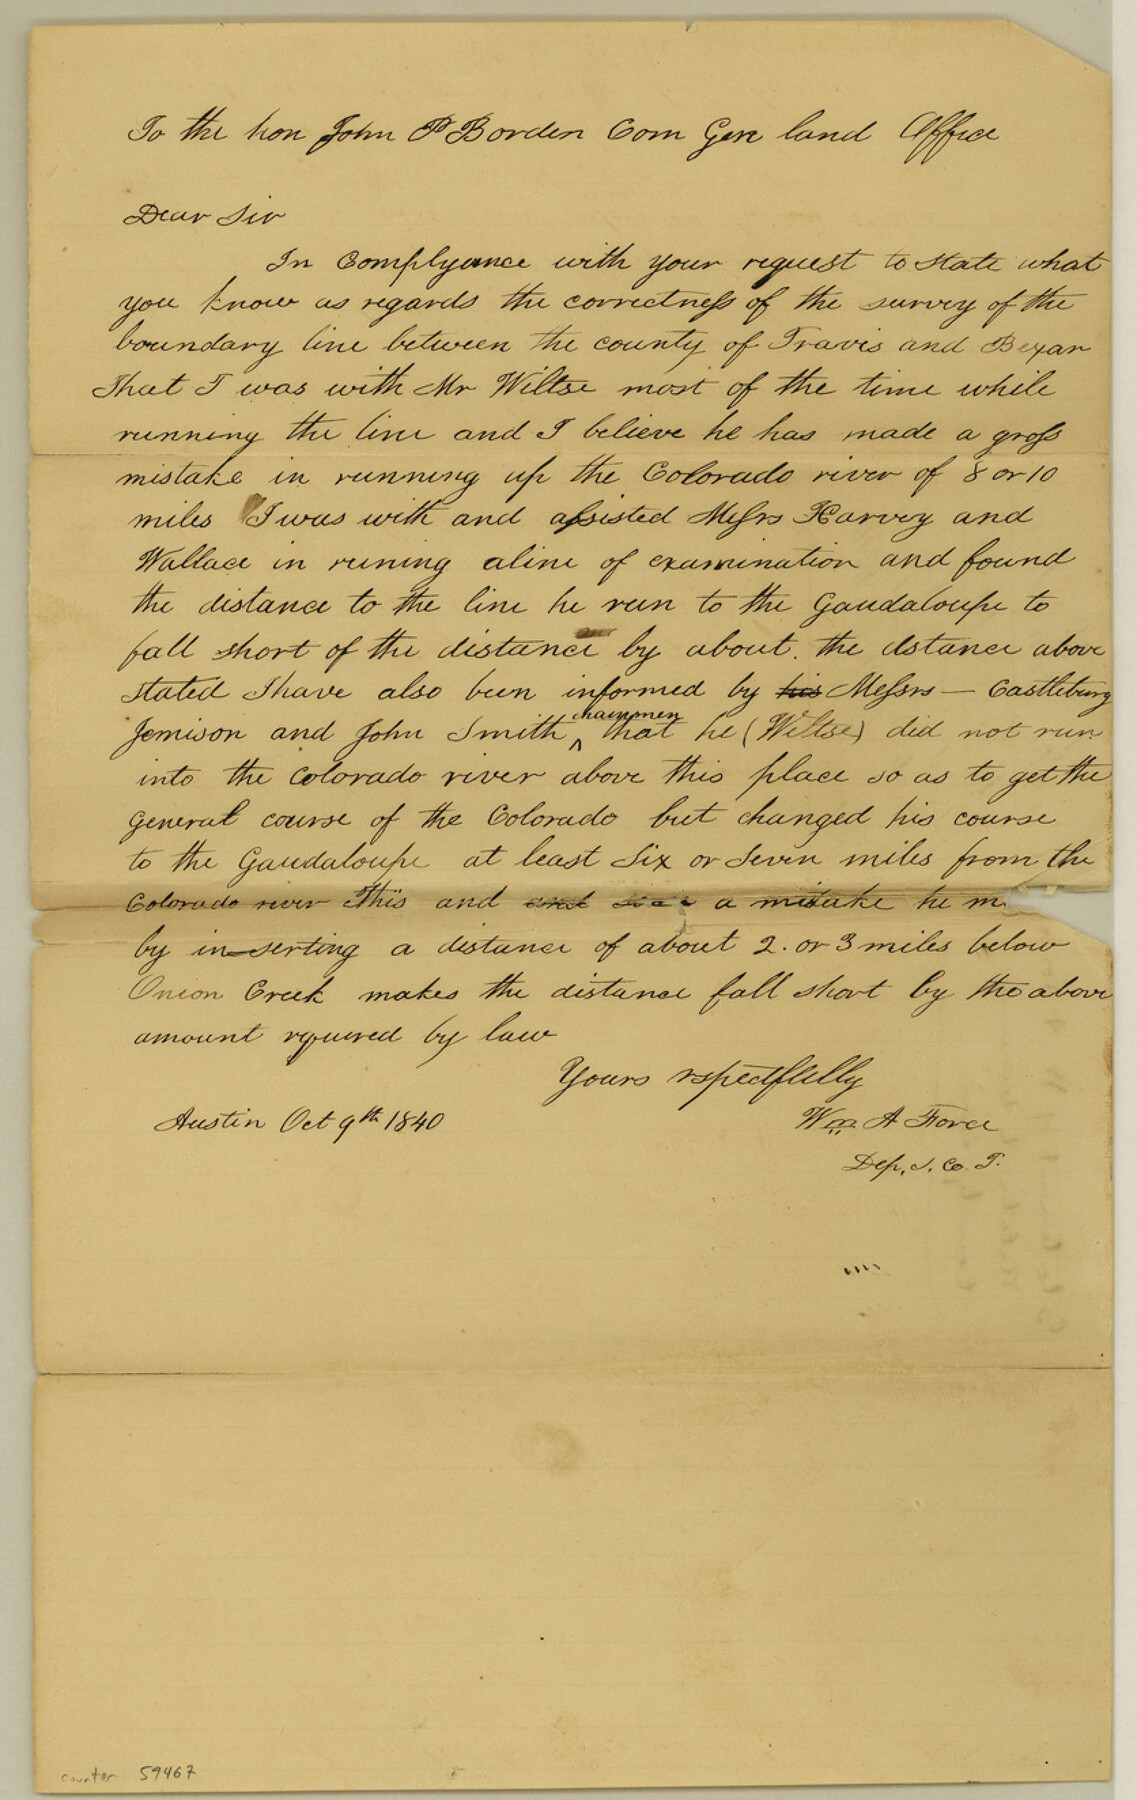 To the hon John P Borden Com Gen land Office
Dear Sir
In Complyance with your request to state what
you know as regards the correctness of the survey of the
boundary line between the county of Travis and Bexar
That I was with Mr Wiltse most of the time while
running the line and I believe he has made a gross
mistake in running up the Colorado river of 8 or 10
miles I was with and assisted Messrs Harvey and
Wallace in runing aline of examination and found
the distance to the line he run to the Gaudaloupe to
fall short of the distance by about. the dstance above
stated I have also been informed by his Messrs — Castlebury
Jemison and John Smith chainmen that he (Wiltse) did not run
into the Colorado river above this place so as to get the
general course of the Colorado but changed his course
to the Gaudaloupe at least Six or Seven miles from the
Colorado river This and and a mistake he m
by in-serting a distance of about 2. or 3 miles below
Onion Creek makes the distance fall short by the above
amount rquired by law
Yours rspectfully
Austin Oct 9th 1840 Wm A Force
Dep. S. Co T.
counter 59467